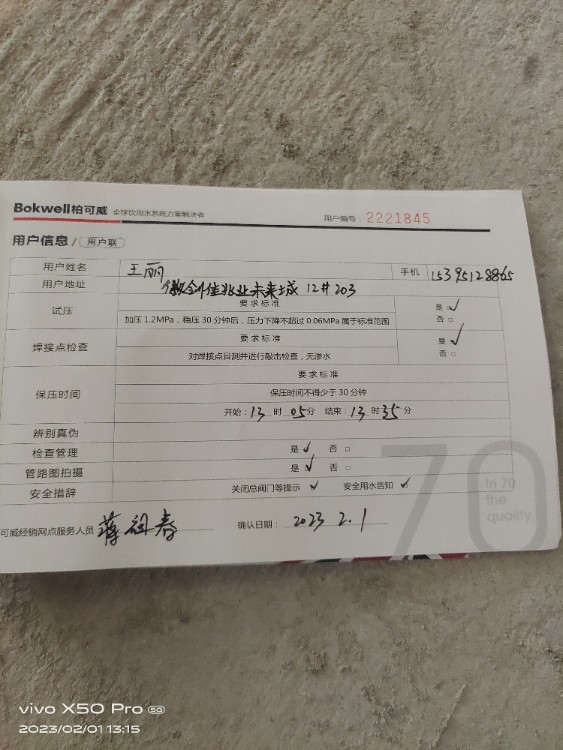 Bokwell柏可威 全球饮用水系统方案解决者 用户编号：2221845
用户信息/用户联
用户姓名 王丽 手机 15395128865
用户地址 佳兆业未来城 12#203
试压 要求标准 是 ✓
加压 1.2MPa，稳压 30 分钟后，压力下降不超过 0.06MPa 属于标准范围 否 □
焊接点检查 要求标准 是 ✓
对焊接点目测并进行敲击检查，无渗水 否 □
保压时间 要求标准
保压时间不得少于 30 分钟
开始：13 时 05 分 结束：13 时 35 分
辨别真伪
检查管理 是 ✓ 否 □
管路图拍摄 是 ✓ 否 □
安全措辞 关闭总阀门等提示 ✓ 安全用水告知 ✓
70
In 70
the
quality
可威经销网点服务人员 蒋 春 确认日期：2023 2.1
vivo X50 Pro 5G
2023/02/01 13:15